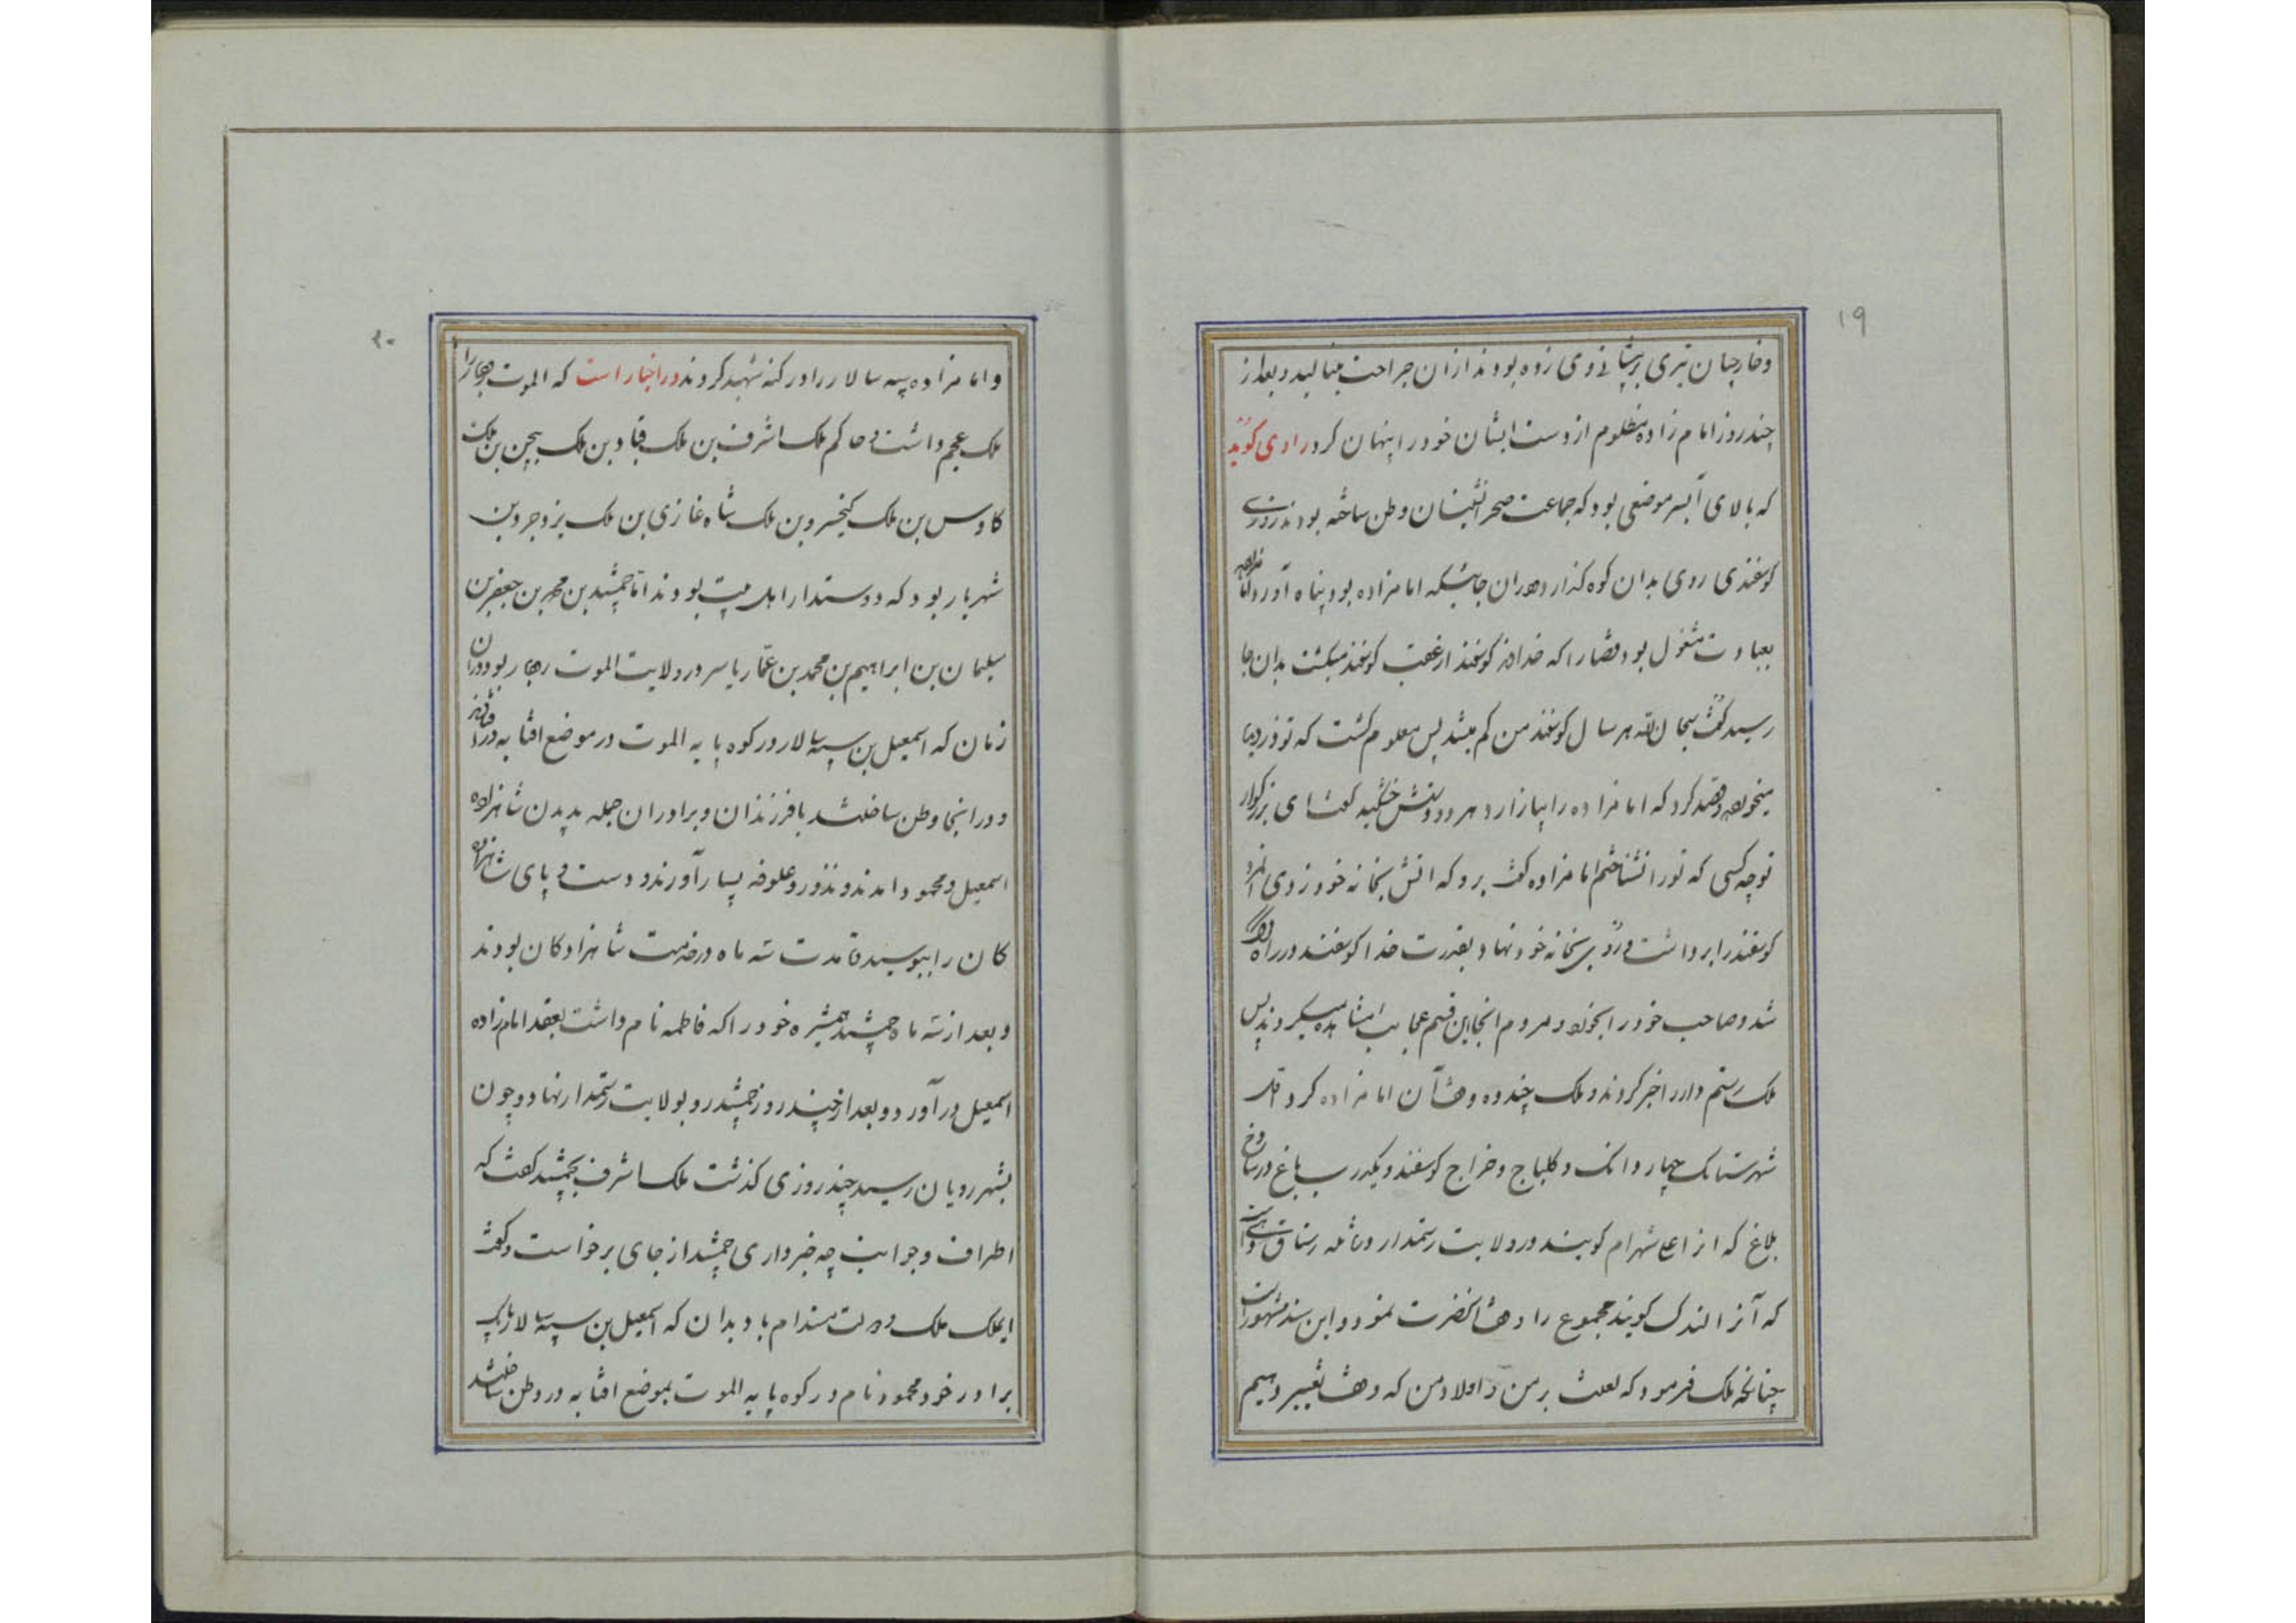 ۱۹
وخارجیان تیری بر پیشانی وی زده بودند ازان جراحت مینالید و بعد از
چند روز امام زاده مظلوم از دست ایشان خود را پنهان کرد راوی گوید
که بالای آبسر موضعی بود که جماعت صحرانشینان وطن ساخته بودند روزی
کوسفندی روی بدان کوه گذارد و دران جائیکه امامزاده بود پناه آورد
بعبادت مشغول بود قضا را که خداوند کوسفند از عقب کوسفند میکشت بدان جا
رسید گفت سبحان الله هر سال کوسفند من کم میشد پس معلوم کشت که تو دزدیدۀ
میخواهد قصد کرد که امامزاده را بیازارد هر دو دستش خشکید گفت ای بزرکوار
تو چه کسی که تو را نشناختم امامزاده گفت برو که اتش بخانه خود زدی
کوسفند را برداشت و رو بر بخانه خود نهاد بقدرت خدا کوسفند در راه
شد و صاحب خود را بخواند مردم انجا این قسم عجایب مشاهده میکردند پس
ملک رستم دار را خبر کردند و ملک چند ده وقف آن امامزاده کرد اول
شهرستانک چهار دانک و کلباج و خراج کوسفند و یکدر ب باغ در
بلاغ که از اعلی شهرام کویند در ولایت رستمدار و
که آنرا الندک کویند مجموع را وقف انحضرت نمود و این سند مشهور است
چنانچه ملک فرمود که لعنت بر من و اولاد من که وقف تغییر دهیم
۲۰
و امامزاده سپه سالار را در کنه شهید کردند در اخبار است که الموت
ملک عجم داشت و حاکم ملک اشرف بن ملک قباد بن ملک بیجن بن ملک
کاوس بن ملک کیخسرو بن ملک شاه غازی بن ملک یزدجرد بن
شهریار بود که دوستدار اهل بیت بودند اما جمشید بن محمد بن جعفر بن
سلیمان بن ابراهیم بن محمد بن عمار یاسر در ولایت الموت رهبار بود و دران
زمان که اسمعیل بن سپه سالار در کوه پایه الموت در موضع افتابه در
و در اینجا وطن ساختند با فرزندان و برادران جمله بدیدن شاهزاده
اسمعیل و محمود امدند و نذور و علوفه بسیار آوردند و دست و پای شاهزاده
کان را ببوسید تا مدت سه ماه در خدمت شاهزادکان بودند
و بعد از سه ماه جمشید همشیره خود را که فاطمه نام داشت بعقد امامزاده
اسمعیل در آورد و بعد از چند روز جمشید رو بولایت رستمدار نهاد و چون
بشهر رویان رسید چند روزی کذشت ملک اشرف بجمشید گفت که
اطراف و جوانب چه خبر داری جمشید از جای برخواست و گفت
ایملک ملک و دولت مستدام باد بدان که اسمعیل بن سپه سالار با یک
برادر خود محمود نام در کوه پایه الموت بموضع افتابه در وطن ساختند